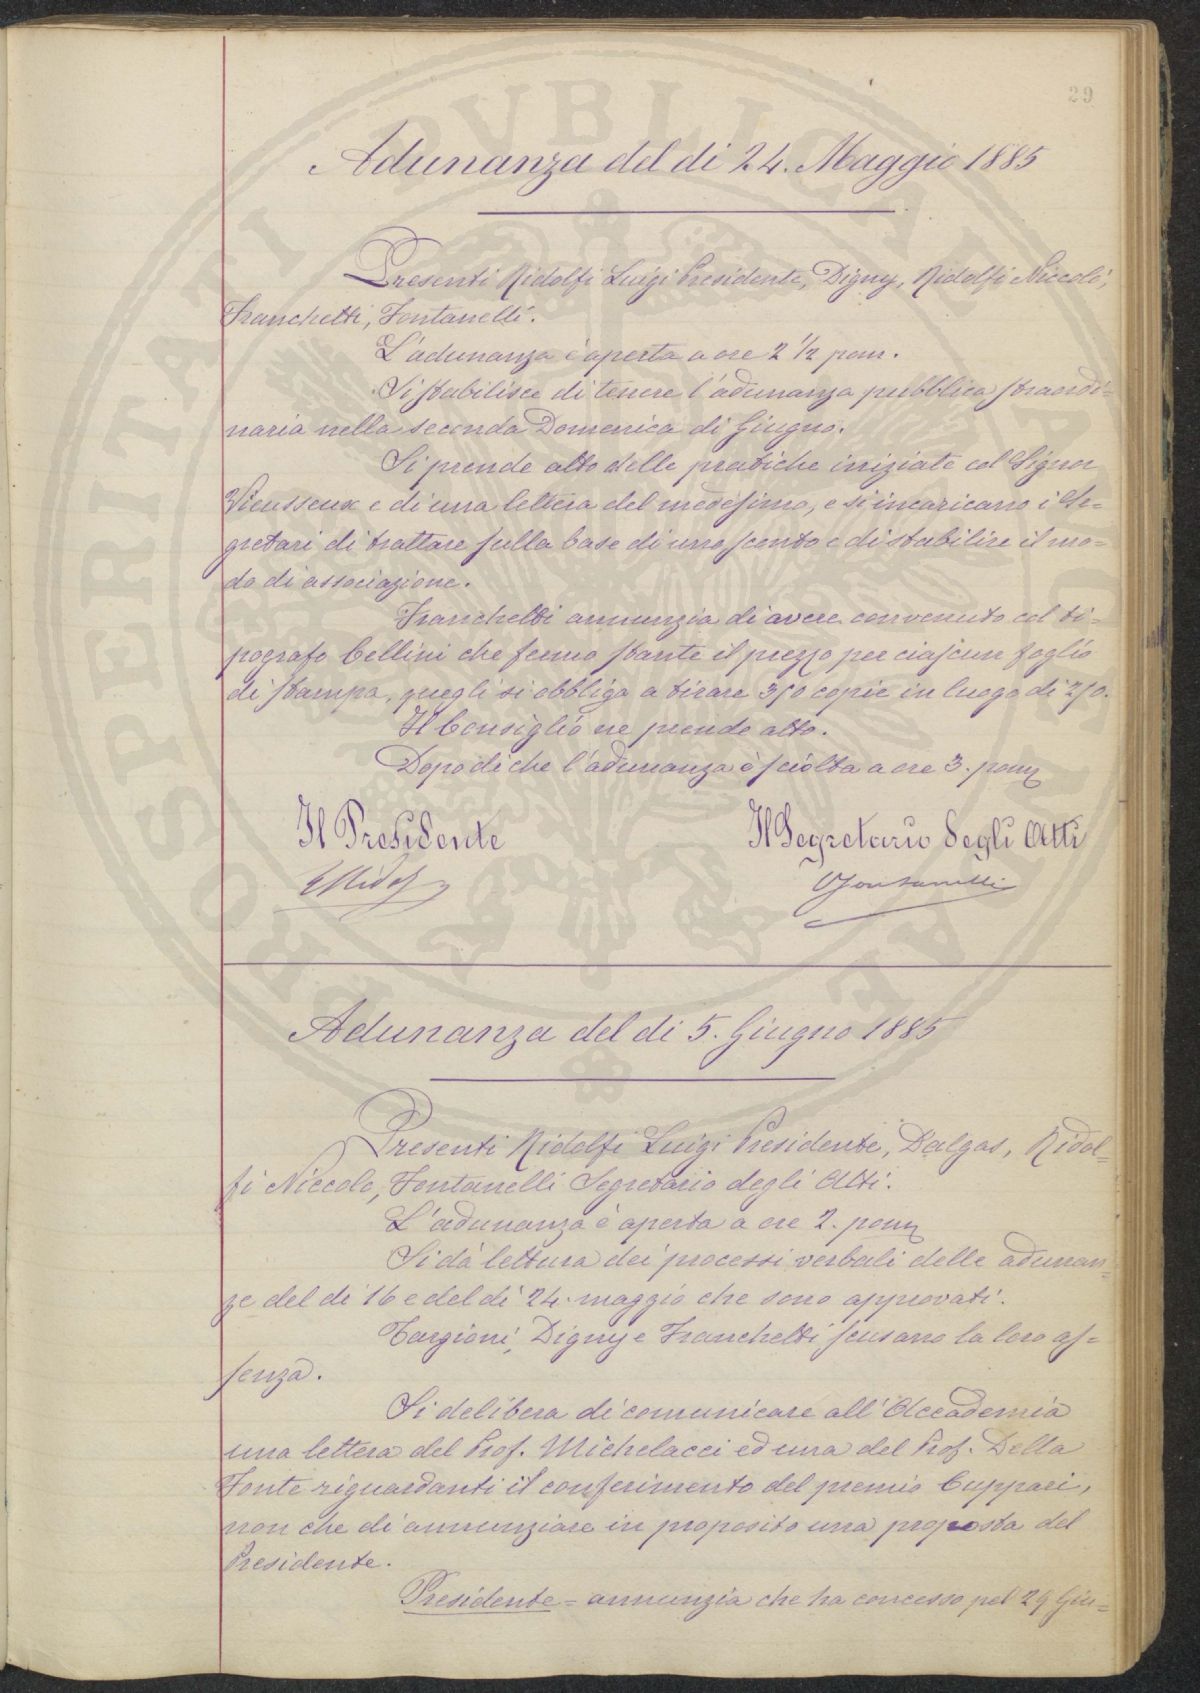 29
Adunanza del dì 24. Maggio 1885
Presenti Ridolfi Luigi Presidente, Digny, Ridolfi Niccolò,
Franchetti, Fontanelli.
L'adunanza è aperta a ore 2 1/2 pom.
Si stabilisce di tenere l'adunanza pubblica straordi=
naria nella seconda Domenica di Giugno.
Si prende atto delle pratiche iniziate col Signor
Vieusseux e di una lettera del medesimo, e si incaricano i Se=
gretari di trattare sulla base di uno sconto e di stabilire il mo=
do di associazione.
Franchetti annunzia di avere convenuto col ti=
pografo Cellini che fermo stante il prezzo per ciascun foglio
di stampa, quegli si obbliga a tirare 350 copie in luogo di 250.
Il Consiglio ne prende atto.
Dopo di che l'adunanza è sciolta a ore 3. pom
Il Presidente
Il Segretario degli Atti
LRidolfi
Fontanelli
Adunanza del dì 5. Giugno 1885
Presenti Ridolfi Luigi Presidente, Dalgas, Ridol=
fi Niccolò, Fontanelli Segretario degli Atti.
L'adunanza è aperta a ore 2. pom
Si dà lettura dei processi verbali delle adunan=
ze del dì 16 e del dì 24 maggio che sono approvati.
Targioni, Digny e Franchetti scusano la loro as=
senza.
Si delibera di comunicare all'Accademia
una lettera del Prof. Michelacci ed una del Prof. Della
Fonte riguardanti il conferimento del premio Cuppari,
non che di annunziare in proposito una proposta del
Presidente.
Presidente = annunzia che ha concesso pel 29 Giu=
PROSPERITATI PVBLICAE AVGENDAE